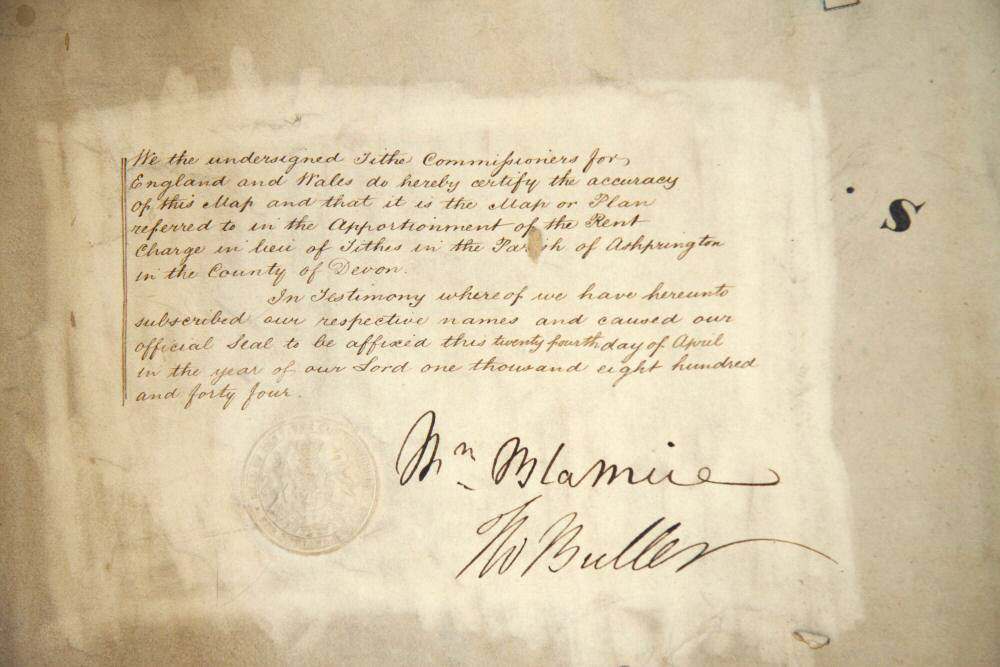 We the undersigned Tithe Commissioners for
England and Wales do hereby certify the accuracy
of this Map and that it is the Map or Plan
referred to in the Apportionment of the Rent
Charge in lieu of Tithes in the Parish of Ashprington
in the County of Devon.
In Testimony whereof we have hereunto
subscribed our respective names and caused our
official Seal to be affixed this twenty fourth day of April
in the year of our Lord one thousand eight hundred
and forty four.
Wm Blamire
Tho Buller
S